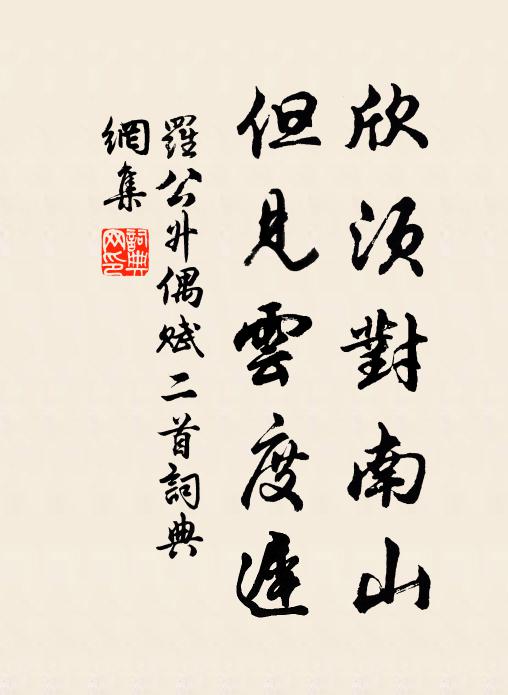 欣須對南山
但見雲度遲
羅公升偶賦二首詞典
網集
詞典網印